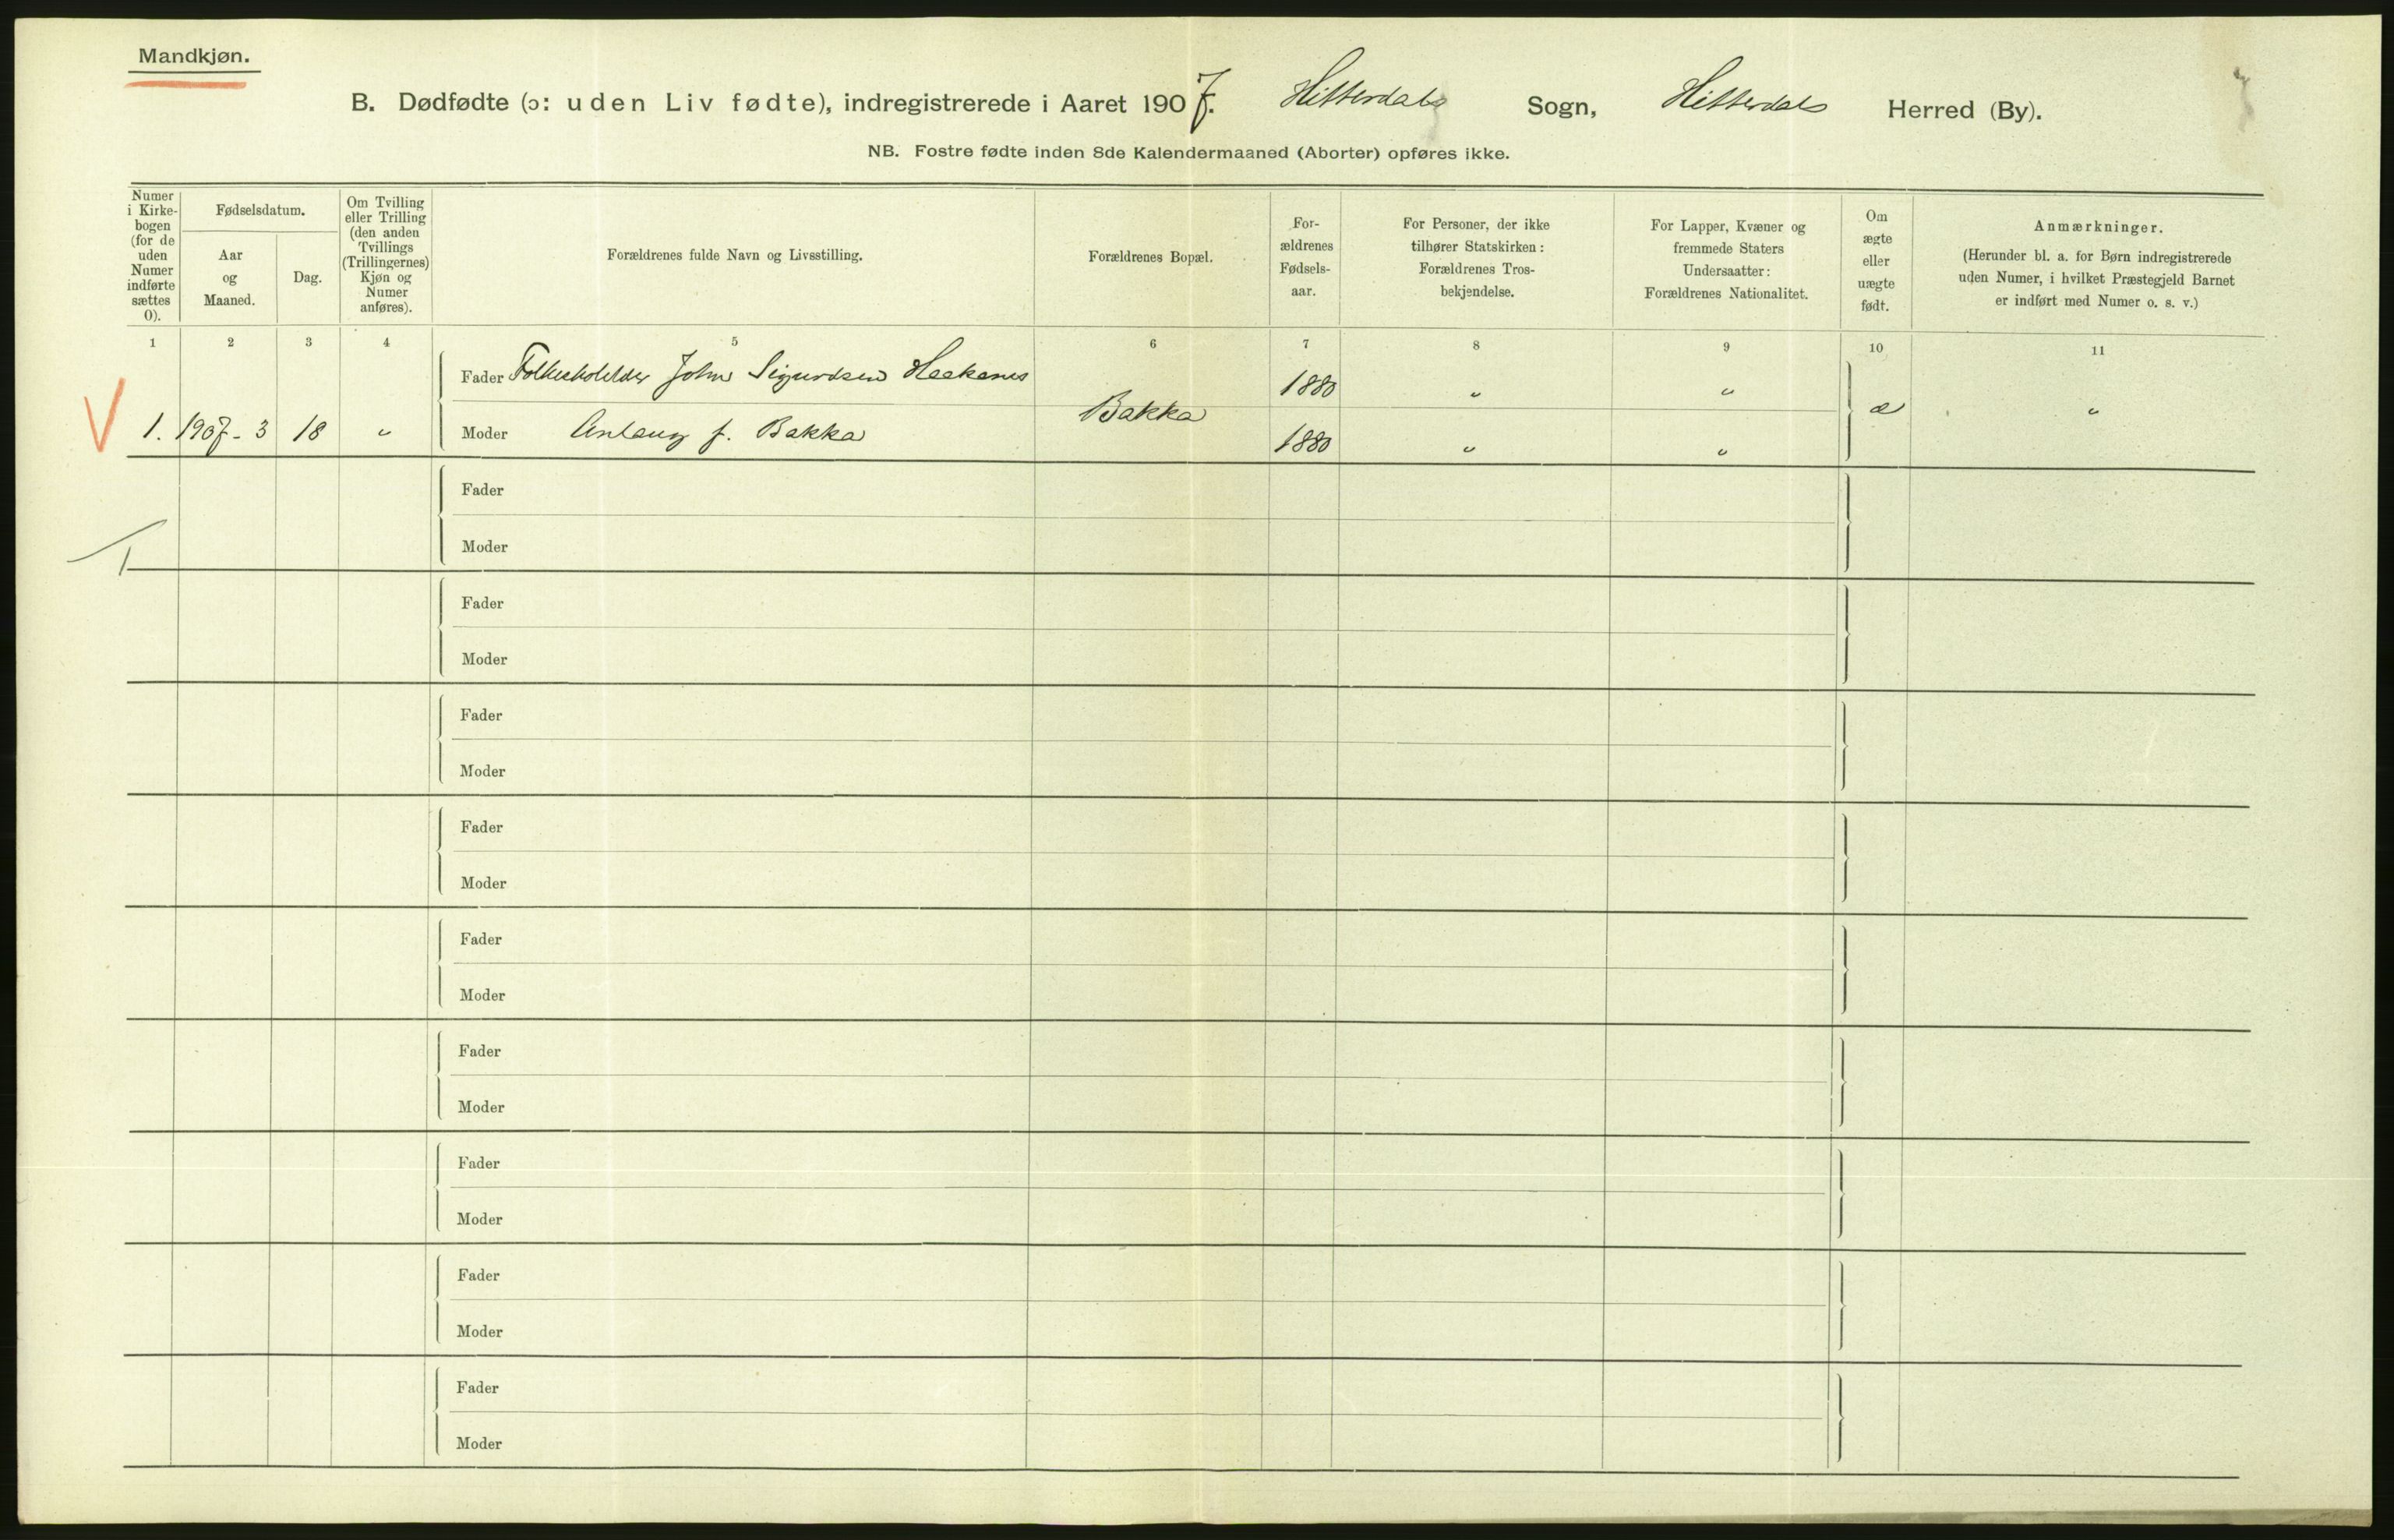 Mandkjøn.
B. Dødfødte (ɔ: uden Liv fødte), indregistrerede i Aaret 1907. Hitterdals Sogn, Hitterdals Herred (By).
NB. Fostre fødte inden 8de Kalendermaaned (Aborter) opføres ikke.
Numer
i Kirke-
bogen
(for de
uden
Numer
indførte
sættes
0).
Fødselsdatum.
Aar
og
Maaned.
Dag.
Om Tvilling
eller Trilling
(den anden
Tvillings
(Trillingernes)
Kjøn og
Numer
anføres).
Forældrenes fulde Navn og Livsstilling.
Forældrenes Bopæl.
For-
ældrenes
Fødsels-
aar.
For Personer, der ikke
tilhører Statskirken:
Forældrenes Tros-
bekjendelse.
For Lapper, Kvæner og
fremmede Staters
Undersaatter:
Forældrenes Nationalitet.
Om
ægte
eller
uægte
født.
Anmærkninger.
(Herunder bl. a. for Børn indregistrerede
uden Numer, i hvilket Præstegjeld Barnet
er indført med Numer o. s. v.)
1 2 3 4 5 6 7 8 9 10 11
Fader John Sigurdsen 1880 " "
1. 1907-3 18 " Bakka æ "
Moder f. Bakka 1880 " "
Fader
Moder
Fader
Moder
Fader
Moder
Fader
Moder
Fader
Moder
Fader
Moder
Fader
Moder
Fader
Moder
Fader
Moder